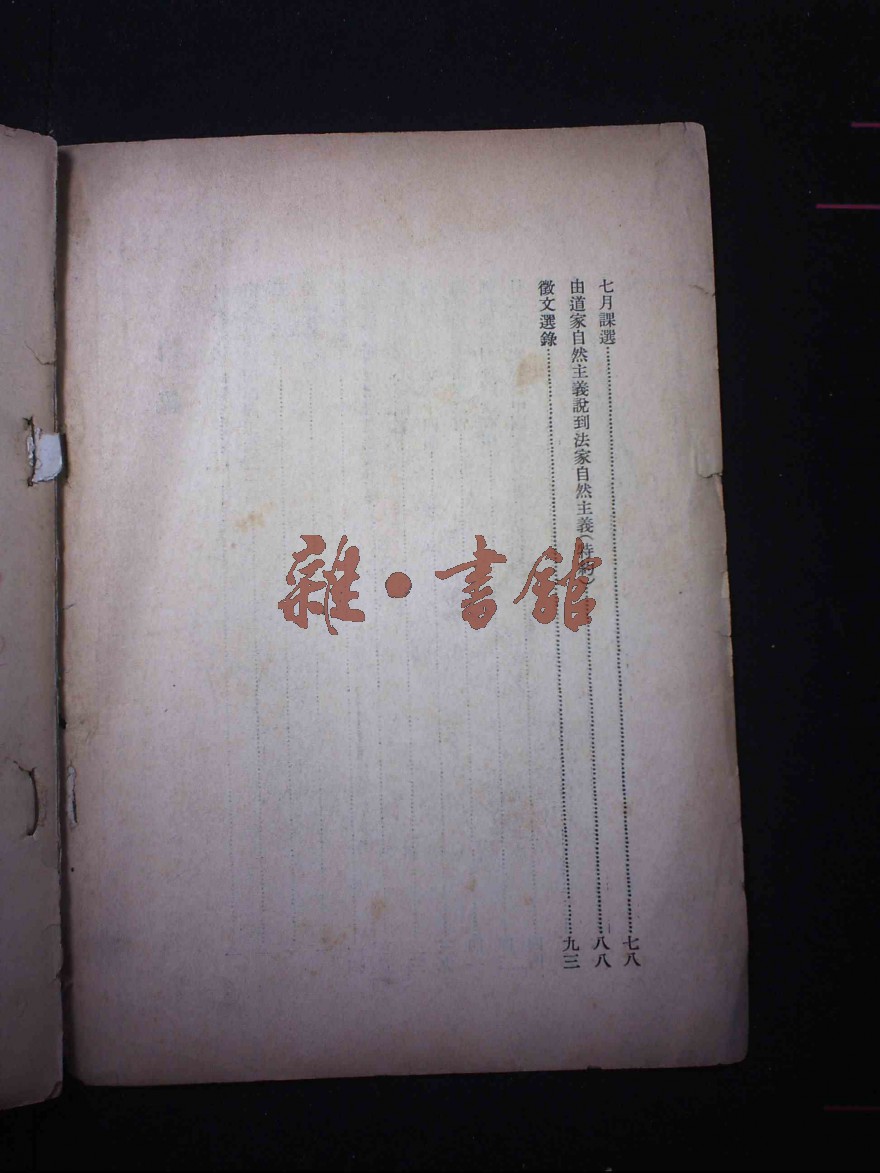 七月課選……七八
由道家自然主義說到法家自然主義（特約）……八八
徵文選錄……九三
雜·書館